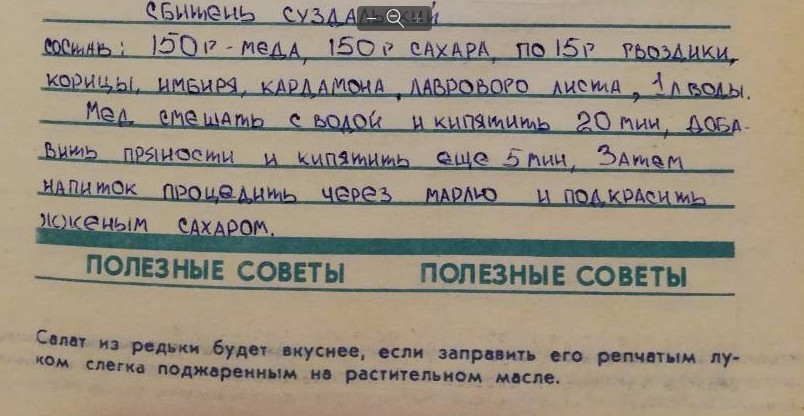 СБИТЕНЬ СУЗДАЛЬСКИЙ
СОСТАВ: 150 Г - МЕДА, 150 Г САХАРА, ПО 15 Г ГВОЗДИКИ,
КОРИЦЫ, ИМБИРЯ, КАРДАМОНА, ЛАВРОВОГО ЛИСТА, 1 Л ВОДЫ.
МЕД СМЕШАТЬ С ВОДОЙ И КИПЯТИТЬ 20 МИН, ДОБА-
ВИТЬ ПРЯНОСТИ И КИПЯТИТЬ ЕЩЕ 5 МИН, ЗАТЕМ
НАПИТОК ПРОЦЕДИТЬ ЧЕРЕЗ МАРЛЮ И ПОДКРАСИТЬ
ЖЖЕНЫМ САХАРОМ.
ПОЛЕЗНЫЕ СОВЕТЫ ПОЛЕЗНЫЕ СОВЕТЫ
Салат из редьки будет вкуснее, если заправить его репчатым лу-
ком слегка поджаренным на растительном масле.